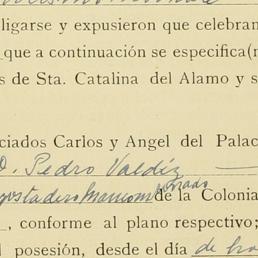 ligarse y expusieron que celebran
que a continuación se especifica(n
s de Sta. Catalina del Alamo y s
ciados Carlos y Angel del Palac
D. Pedro Valdéz
de la Colonia
, conforme al plano respectivo;
posesión, desde el día de